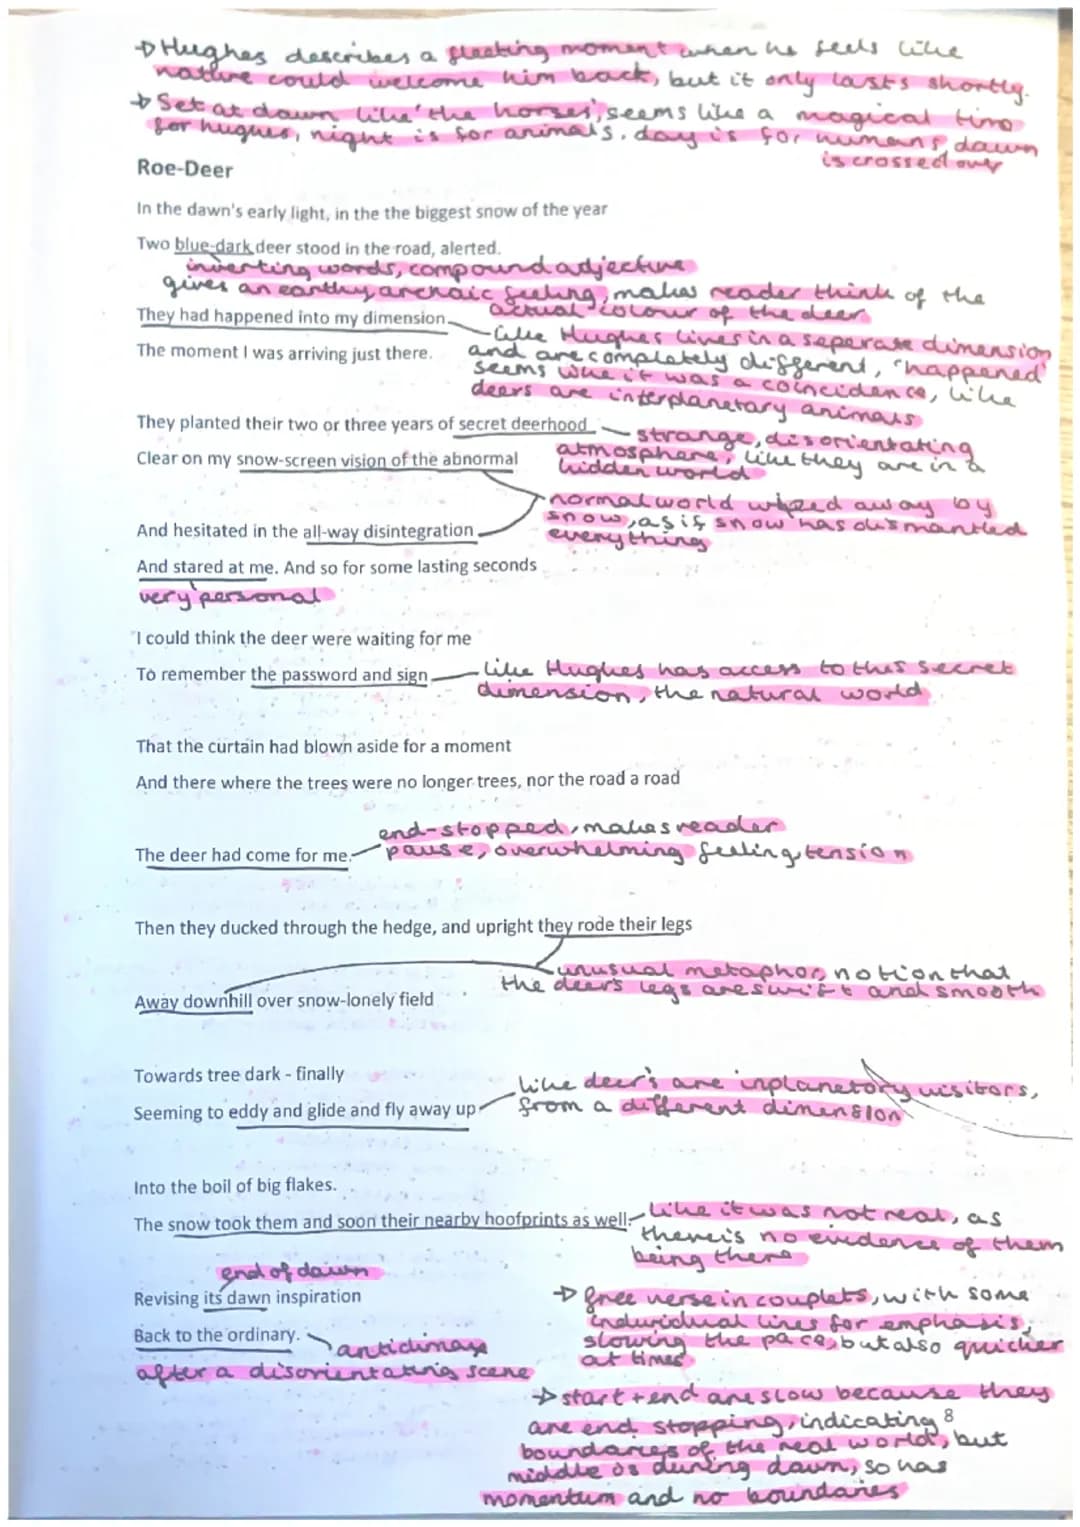 → Hughes describes a fleeting moment when he feels like
nature could welcome him back, but it only lasts shortly.
→ Set at dawn like 'the horses', seems like a magical time
for hughes, night is for animals. day is for humans, dawn
is crossed over
Roe-Deer
In the dawn's early light, in the the biggest snow of the year
Two blue-dark deer stood in the road, alerted.
inverting words, compound adjective
gives an earthy archaic feeling, makes reader think of the
actual colour of the deer
They had happened into my dimension
- like Hughes lives in a seperate dimension
The moment I was arriving just there.
and are completely different, 'happened'
seems like it was a coincidence, like
deers are interplanetary animals
They planted their two or three years of secret deerhood
- strange, disorientating
atmosphere, like they are in a
hidden world
Clear on my snow-screen vision of the abnormal
normal world wiped away by
snow, as if snow has dismantled
everything
And hesitated in the all-way disintegration
And stared at me. And so for some lasting seconds
very personal
I could think the deer were waiting for me
To remember the password and sign
- like Hughes has access to this secret
dimension, the natural world
That the curtain had blown aside for a moment
And there where the trees were no longer trees, nor the road a road
end-stopped, makes reader
The deer had come for me.
pause, overwhelming feeling, tension
Then they ducked through the hedge, and upright they rode their legs
unusual metaphor, notion that
the deer's legs are swift and smooth
Away downhill over snow-lonely field
Towards tree dark - finally
like deer's are inplanetory visitors,
Seeming to eddy and glide and fly away up
from a different dimension
Into the boil of big flakes.
The snow took them and soon their nearby hoofprints as well
- like it was not real, as
there is no evidence of them
being there
end of dawn
Revising its dawn inspiration
Back to the ordinary.
anticlimax
after a disorientating scene
→ free verse in couplets, with some
individual lines for emphasis,
slowing the pace, but also quicker
at times
→ start + end are slow because they
are end stopping, indicating
8
boundaries of the real world, but
middle is during dawn, so has
momentum and no boundaries